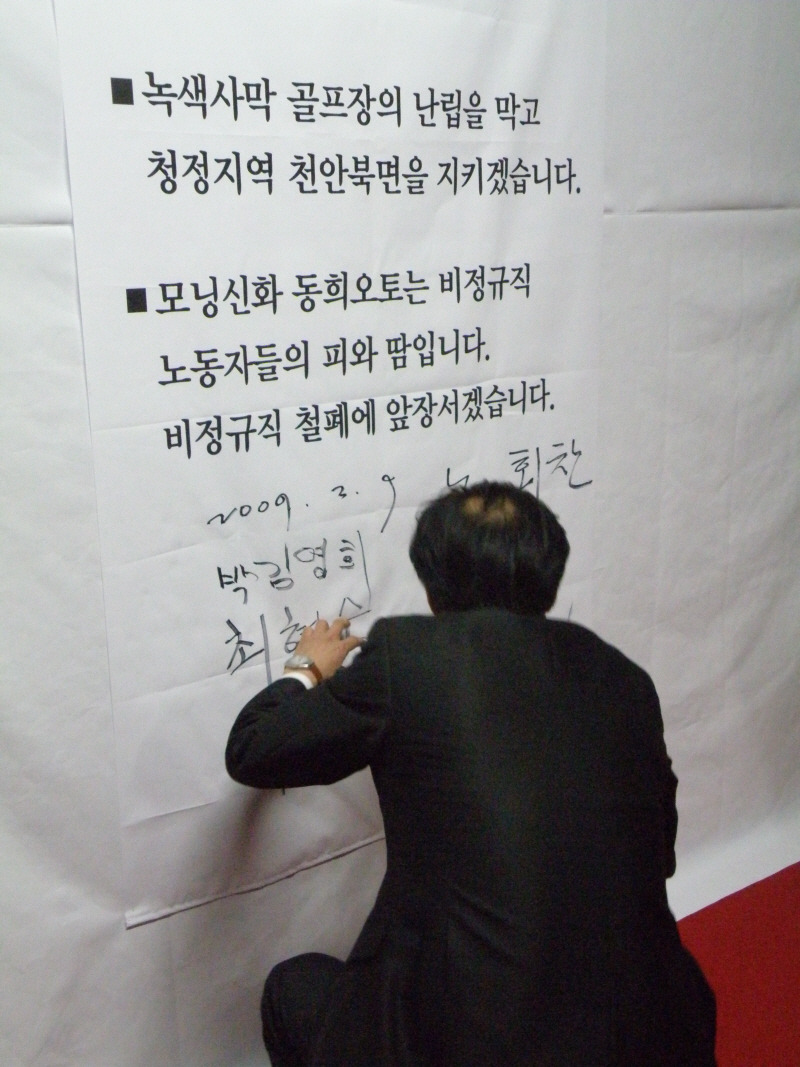 ■ 녹색사막 골프장의 난립을 막고
청정지역 천안북면을 지키겠습니다.
■ 모닝신화 동희오토는 비정규직
노동자들의 피와 땀입니다.
비정규직 철폐에 앞장서겠습니다.
2009. 2. 9 노 회찬
박김영희
최